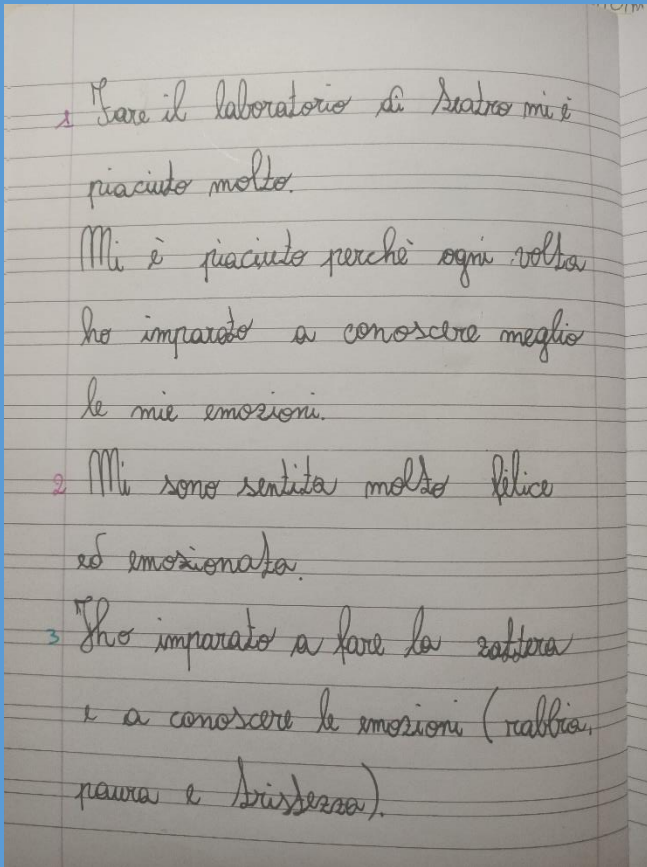 1 Fare il laboratorio di teatro mi è
piaciuto molto.
Mi è piaciuto perchè ogni volta
ho imparato a conoscere meglio
le mie emozioni.
2 Mi sono sentita molto felice
ed emozionata.
3 Ho imparato a fare la zattera
e a conoscere le emozioni (rabbia,
paura e tristezza).